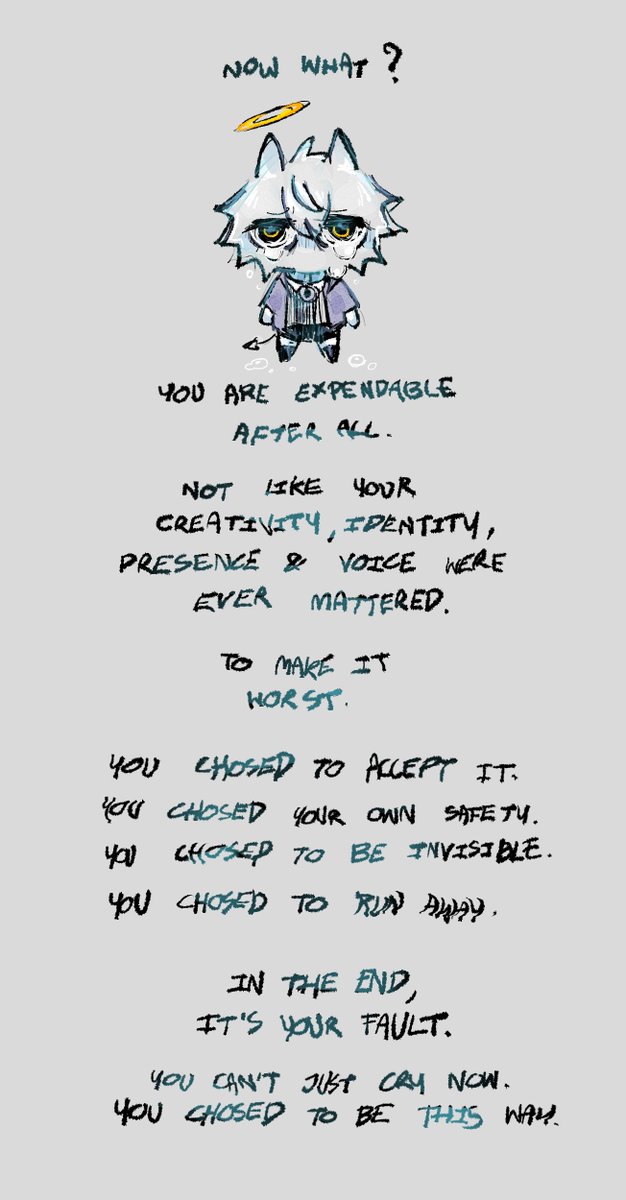 NOW WHAT?
YOU ARE EXPENDABLE
AFTER ALL.
NOT LIKE YOUR
CREATIVITY, IDENTITY,
PRESENCE & VOICE WERE
EVER MATTERED.
TO MAKE IT
WORST.
YOU CHOSED TO ACCEPT IT.
YOU CHOSED YOUR OWN SAFETY.
YOU CHOSED TO BE INVISIBLE.
YOU CHOSED TO RUN AWAY.
IN THE END,
IT'S YOUR FAULT.
YOU CAN'T JUST CRY NOW.
YOU CHOSED TO BE THIS WAY.